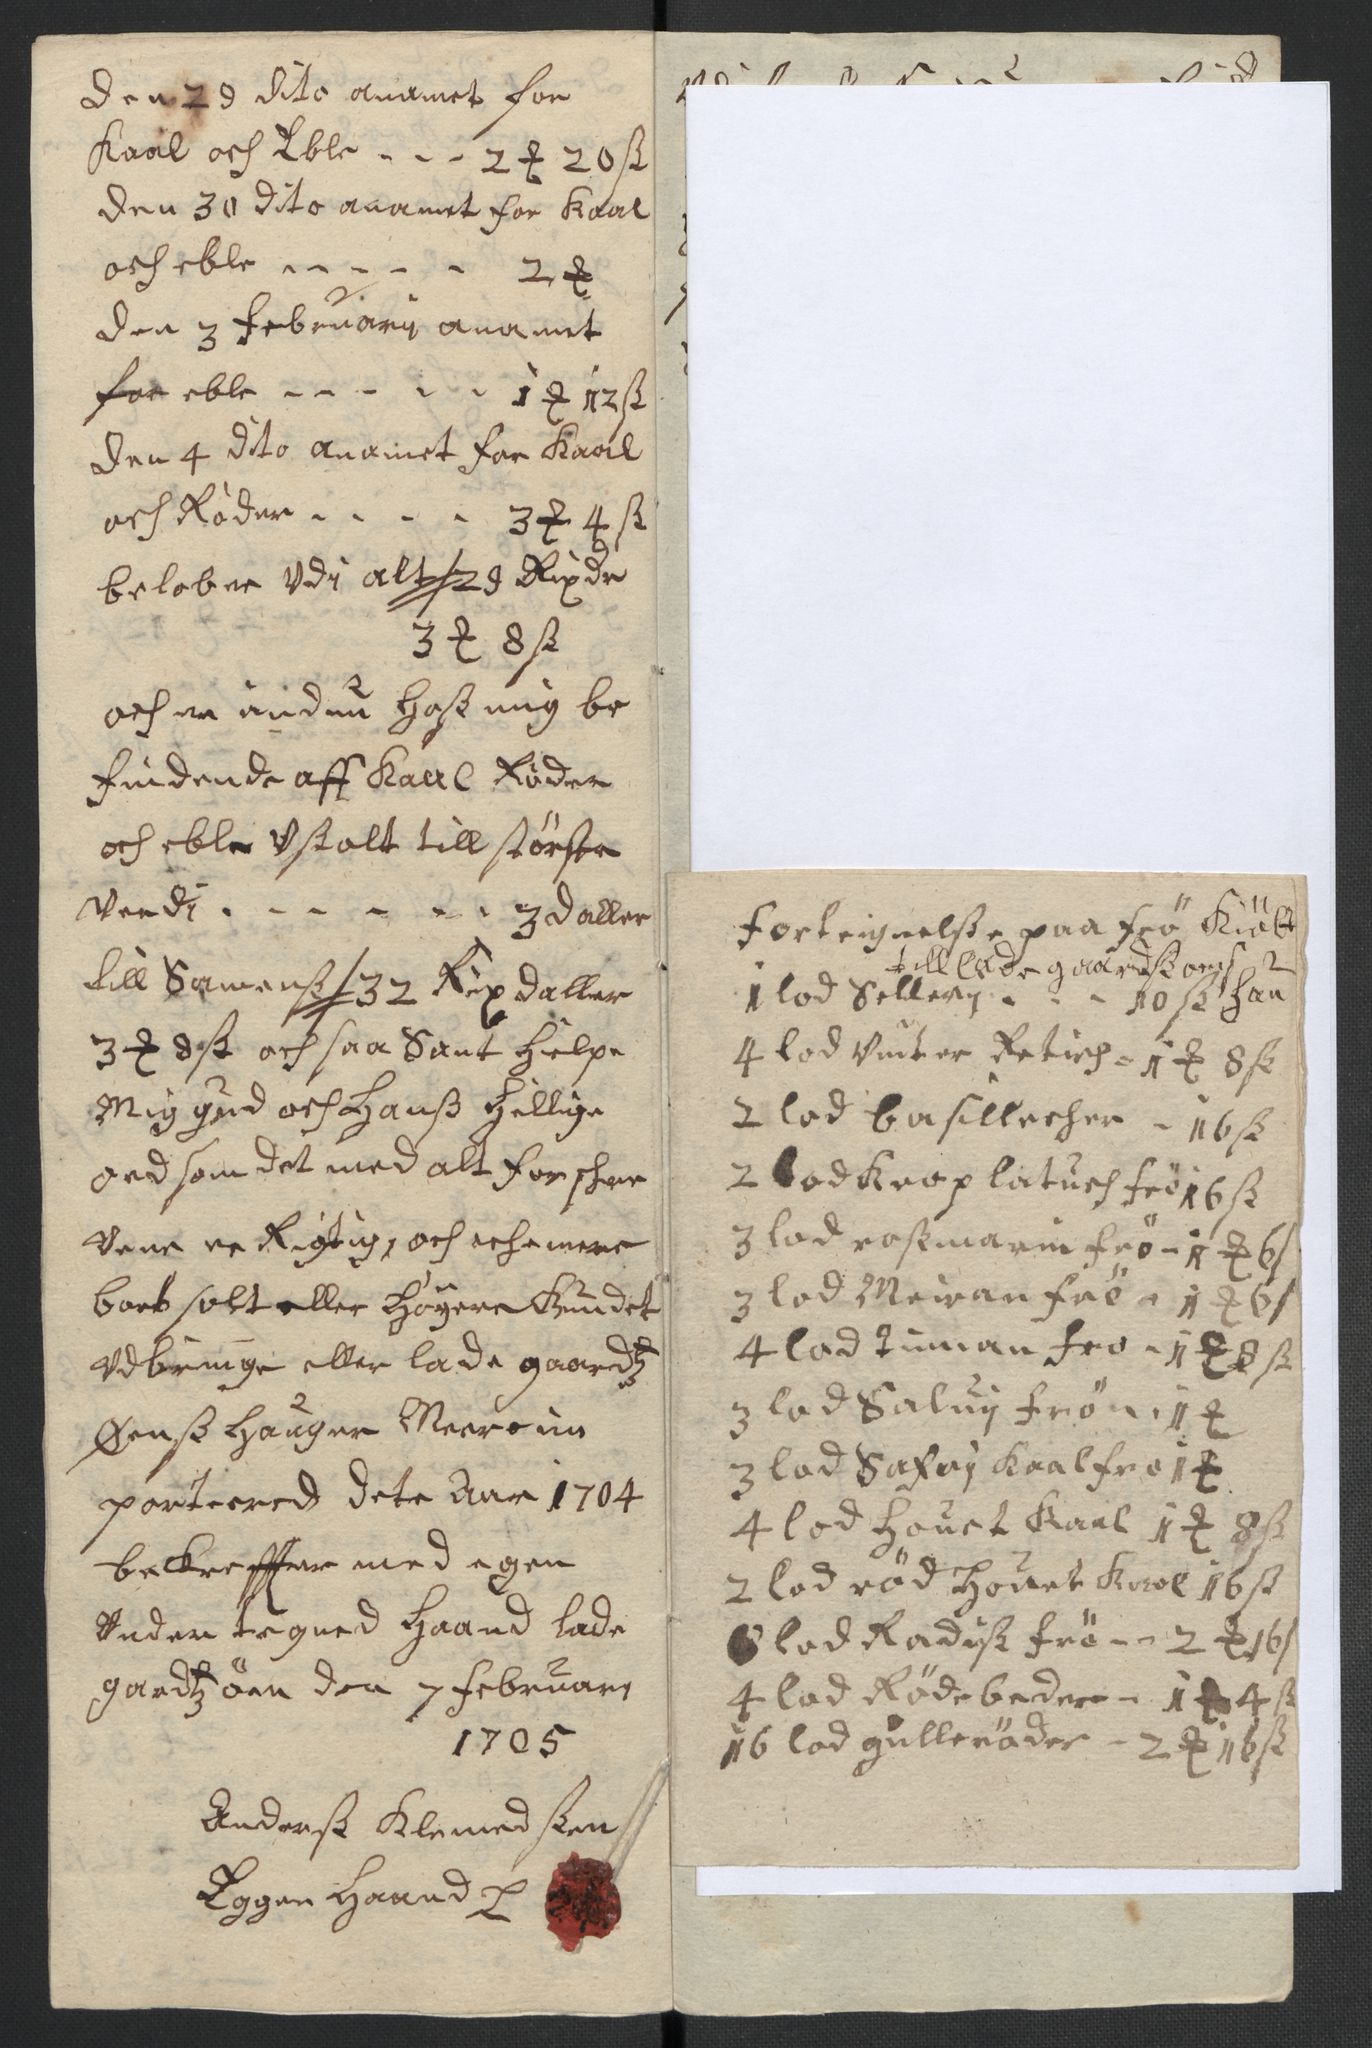 Den 29 dito anamet for
Kaal och Eble - - - 2 ℔ 20 sk
Den 30 dito anamet for Kaal
och eble - - - - - 2 ℔
Den 3 februarij anamet
for eble - - - - - - 1 ℔ 12 sk
Den 4 dito anamet for Kaal
och Røder - - - - 3 ℔ 4 sk
beløber Vdi alt 29 Rixdr
3 ℔ 8 sk
och er indnu Hoss mig be
findende aff Kaal Røder
och eble Vsolt till største
Verdi - - - - - - 3 daller
till Samenss 32 Rixdaller
3 ℔ 8 sk och saa Sant Hielpe
Mig gud och Hanss Hellige
ord som det med alt forschre
Vene er Rigtig, och eche mere
bort solt eller Høyere Kundet
Vdbringe eller lade gaardtz
Øenss Hauger Meere im
porteered dete Aar 1704
bekreffter med egen
Vnder tegned Haand lade
gardtz öen den 7 februarij
1705
Anderss Klemedssen
Eggen Haand
Forteignelsse paa frö Kiöbt
till lade gaardss öens
1 lod Sellerij - - - 10 sk Hau
4 lod Vinter Retich - 1 ℔ 8 sk
2 lod basillecher - 16 sk
2 lod Krop latuch frö 16 sk
3 lod rossmarin frö - 1 ℔ 6 s
3 lod Meiran frö - 1 ℔ 6 s
4 lod timian fro - 1 ℔ 8 sk
3 lod Saluij frö - - 1 ℔
3 lod Safoij Kaalfro 1 ℔
4 lod Houet Kaal 1 ℔ 8 sk
2 lod röd Houet Kaal 16 sk
8 lod Radiss frö - - 2 ℔ 16 s
4 lod Rödebeder - 1 ℔ 4 sk
16 lod gullerøder - 2 ℔ 16 sk